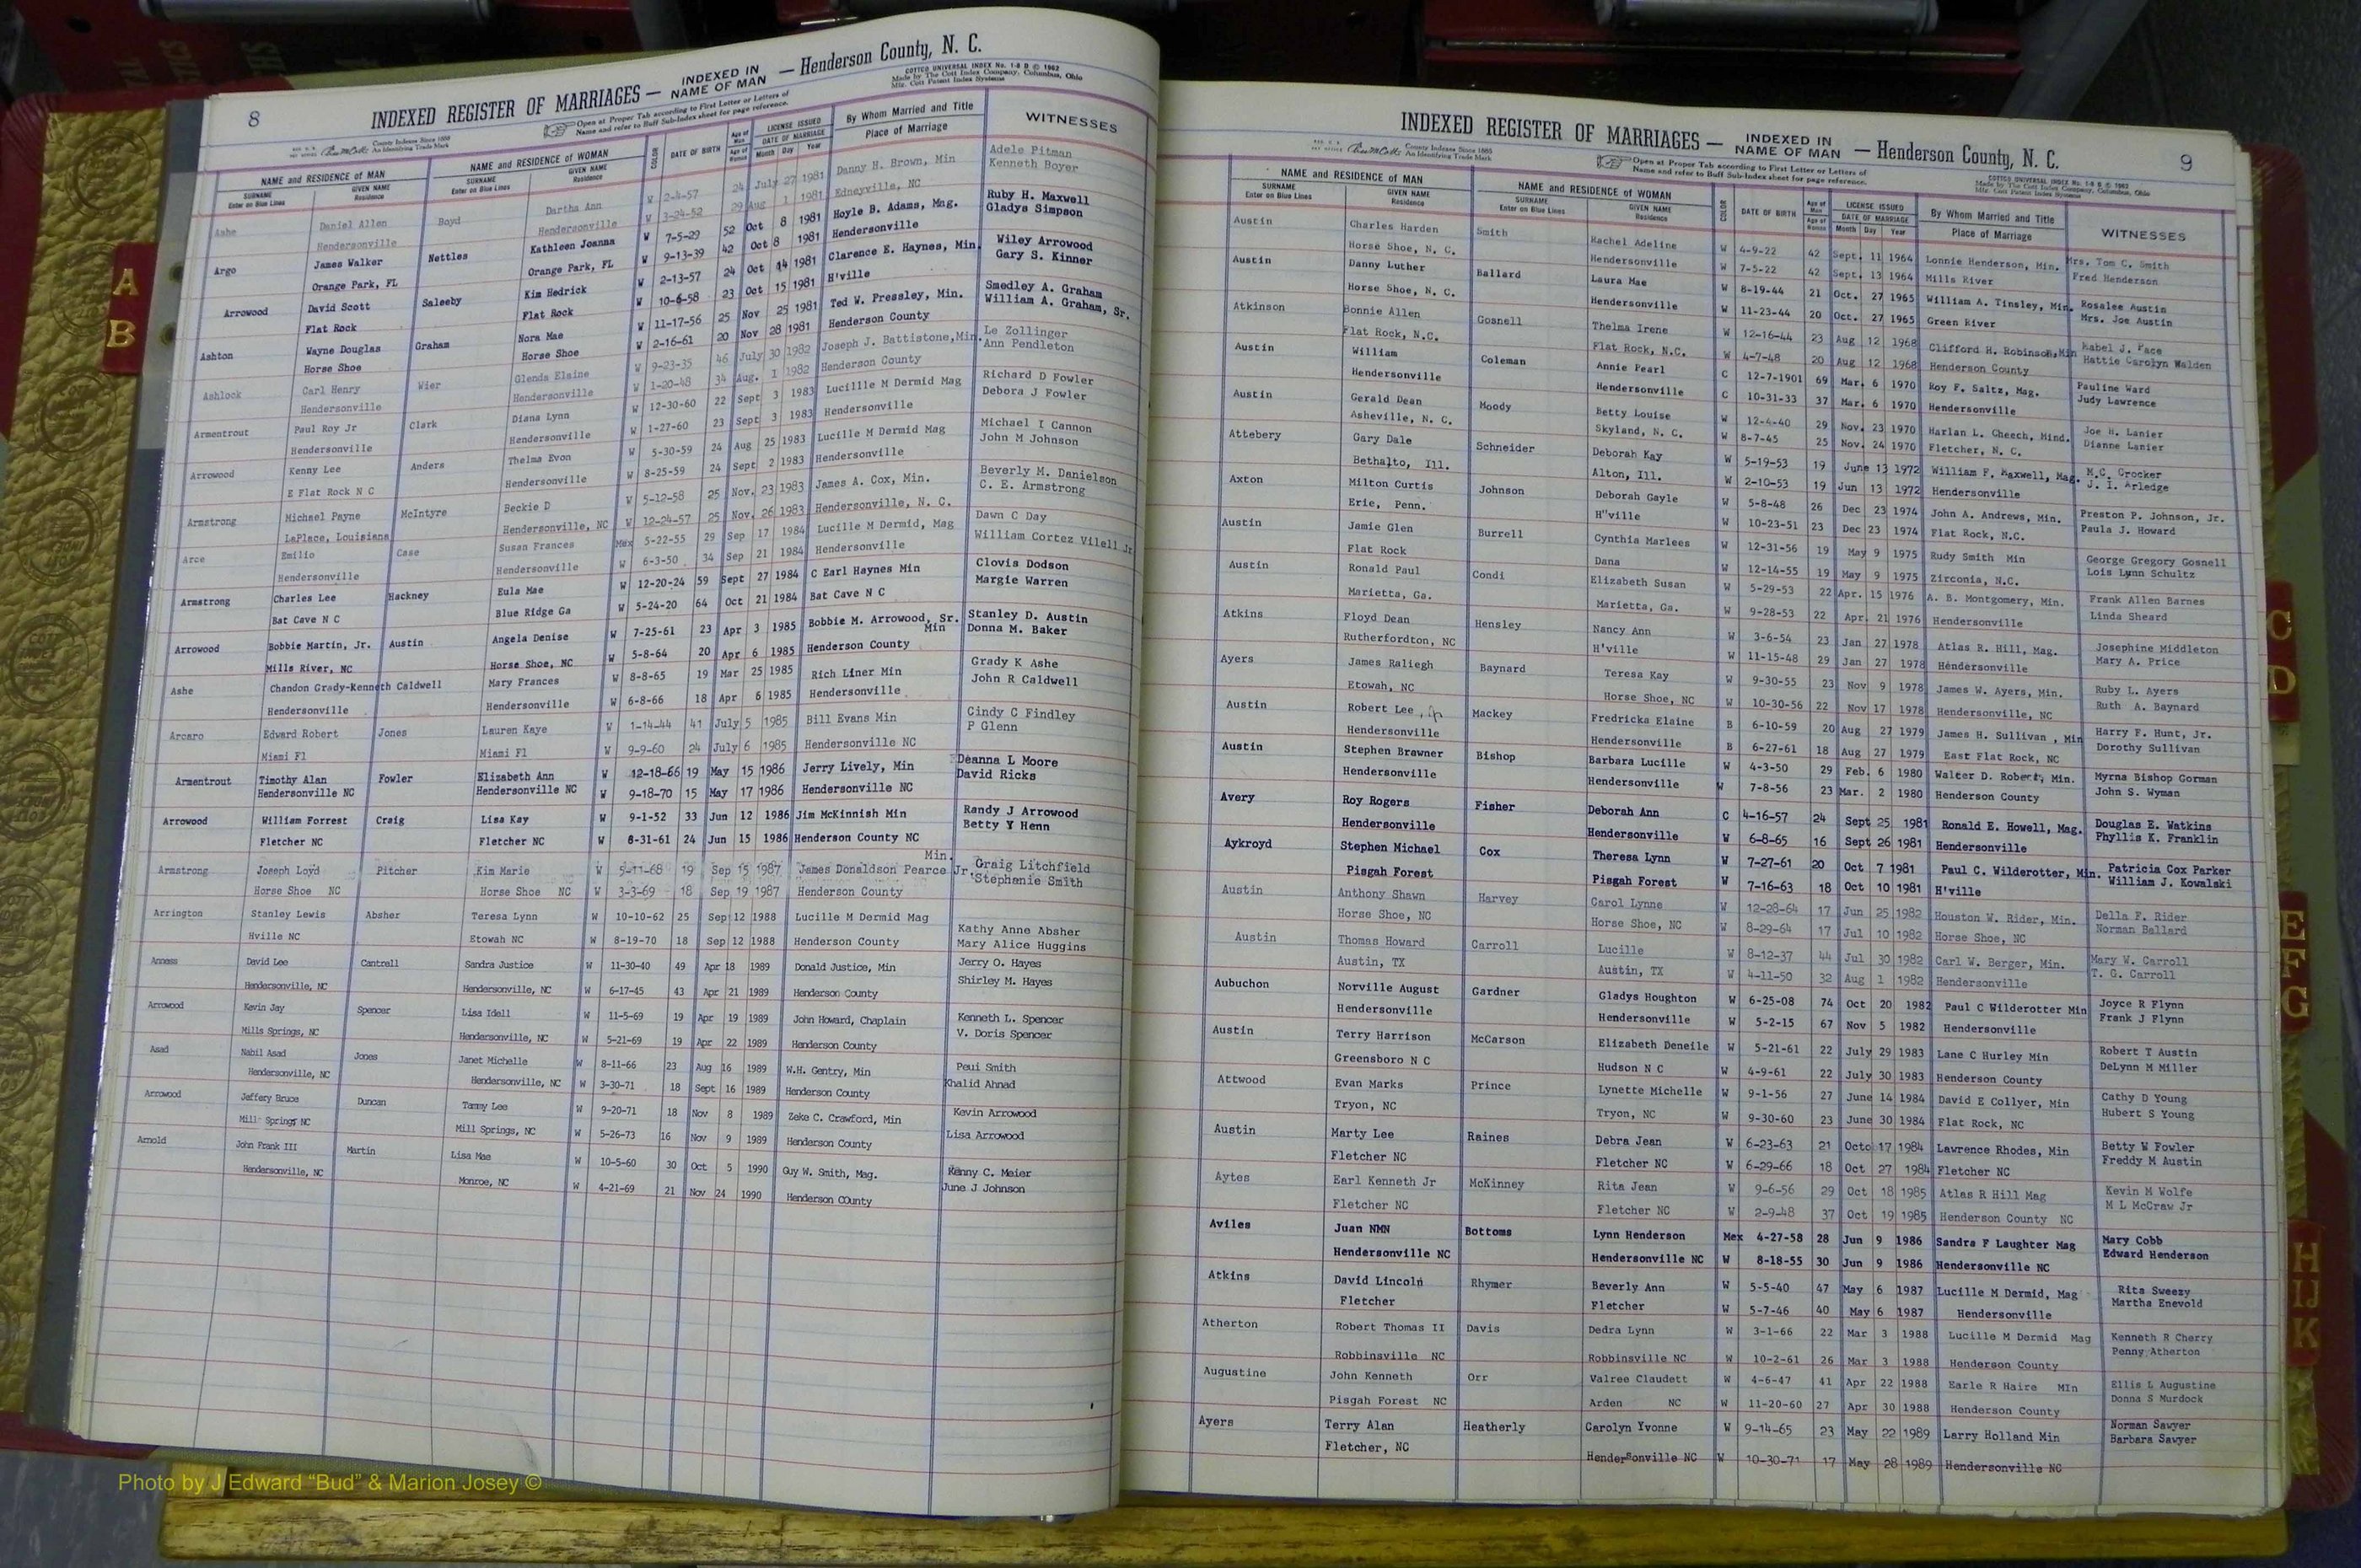 8
INDEXED REGISTER OF MARRIAGES — INDEXED IN NAME OF MAN — Henderson County, N. C.
COTTCO UNIVERSAL INDEX No. 1-8 D © 1962
Made by The Cott Index Company, Columbus, Ohio
Open at Proper Tab according to First Letter or Letters of
Name and refer to Buff Sub-Index sheet for page reference.
County Indexes Since 1888
An Identifying Trade Mark
NAME and RESIDENCE OF MAN NAME and RESIDENCE OF WOMAN COLOR DATE OF BIRTH Age of Man LICENSE ISSUED By Whom Married and Title WITNESSES
SURNAME GIVEN NAME SURNAME GIVEN NAME Age of Woman DATE OF MARRIAGE Place of Marriage
Enter on Blue Lines Residence Enter on Blue Lines Residence Month Day Year
Ashe Daniel Allen Boyd Dartha Ann W 2-4-57 24 July 27 1981 Danny H. Brown, Min Adele Pitman
Hendersonville Hendersonville W 3-24-52 29 Aug 1 1981 Edneyville, NC Kenneth Boyer
Argo James Walker Nettles Kathleen Joanna W 7-5-29 52 Oct 8 1981 Hoyle B. Adams, Mag. Ruby H. Maxwell
Orange Park, FL Orange Park, FL W 9-13-39 42 Oct 8 1981 Hendersonville Gladys Simpson
Arrowood David Scott Saleeby Kim Hedrick W 2-13-57 24 Oct 14 1981 Clarence E. Haynes, Min. Wiley Arrowood
Flat Rock Flat Rock W 10-6-58 23 Oct 15 1981 H'ville Gary S. Kinner
Ashton Wayne Douglas Graham Nora Mae W 11-17-56 25 Nov 25 1981 Ted W. Pressley, Min. Smedley A. Graham
Horse Shoe Horse Shoe W 2-16-61 20 Nov 28 1981 Henderson County William A. Graham, Sr.
Ashlock Carl Henry Wier Glenda Elaine W 9-23-35 46 July 30 1982 Joseph J. Battistone,Min. Le Zollinger
Hendersonville Hendersonville W 1-20-48 34 Aug. 1 1982 Henderson County Ann Pendleton
Armentrout Paul Roy Jr Clark Diana Lynn W 12-30-60 22 Sept 3 1983 Lucillle M Dermid Mag Richard D Fowler
Hendersonville Hendersonville W 1-27-60 23 Sept 3 1983 Hendersonville Debora J Fowler
Arrowood Kenny Lee Anders Thelma Evon W 5-30-59 24 Aug 25 1983 Lucille M Dermid Mag Michael I Cannon
E Flat Rock N C Hendersonville W 8-25-59 24 Sept 2 1983 Hendersonville John M Johnson
Armstrong Michael Payne McIntyre Beckie D W 5-12-58 25 Nov. 23 1983 James A. Cox, Min. Beverly M. Danielson
LaPlace, Louisiana Hendersonville, NC W 12-24-57 25 Nov. 26 1983 Hendersonville, N. C. C. E. Armstrong
Arce Emilio Case Susan Frances Mex 5-22-55 29 Sep 17 1984 Lucille M Dermid, Mag Dawn C Day
Hendersonville Hendersonville W 6-3-50 34 Sep 21 1984 Hendersonville William Cortez Vilell Jr
Armstrong Charles Lee Hackney Eula Mae W 12-20-24 59 Sept 27 1984 C Earl Haynes Min Clovis Dodson
Bat Cave N C Blue Ridge Ga W 5-24-20 64 Oct 21 1984 Bat Cave N C Margie Warren
Arrowood Bobbie Martin, Jr. Austin Angela Denise W 7-25-61 23 Apr 3 1985 Bobbie M. Arrowood, Sr. Min Stanley D. Austin
Mills River, NC Horse Shoe, NC W 5-8-64 20 Apr 6 1985 Henderson County Donna M. Baker
Ashe Chandon Grady-Kenneth Caldwell Mary Frances W 8-8-65 19 Mar 25 1985 Rich Liner Min Grady K Ashe
Hendersonville Hendersonville W 6-8-66 18 Apr 6 1985 Hendersonville John R Caldwell
Arcaro Edward Robert Jones Lauren Kaye W 1-14-44 41 July 5 1985 Bill Evans Min Cindy C Findley
Miami Fl Miami Fl W 9-9-60 24 July 6 1985 Hendersonville NC P Glenn
Armentrout Timothy Alan Fowler Elizabeth Ann W 12-18-66 19 May 15 1986 Jerry Lively, Min Deanna L Moore
Hendersonville NC Hendersonville NC W 9-18-70 15 May 17 1986 Hendersonville NC David Ricks
Arrowood William Forrest Craig Lisa Kay W 9-1-52 33 Jun 12 1986 Jim McKinnish Min Randy J Arrowood
Fletcher NC Fletcher NC W 8-31-61 24 Jun 15 1986 Henderson County NC Betty Y Henn
Armstrong Joseph Loyd Pitcher Kim Marie W 68 19 Sep 15 1987 James Donaldson Pearce Jr. Min. Craig Litchfield
Horse Shoe NC Horse Shoe NC W 3-3-69 18 Sep 19 1987 Henderson County Stephanie Smith
Arrington Stanley Lewis Absher Teresa Lynn W 10-10-62 25 Sep 12 1988 Lucille M Dermid Mag Kathy Anne Absher
Hville NC Etowah NC W 8-19-70 18 Sep 12 1988 Henderson County Mary Alice Huggins
Anness David Lee Cantrell Sandra Justice W 11-30-40 49 Apr 18 1989 Donald Justice, Min Jerry O. Hayes
Hendersonville, NC Hendersonville, NC W 6-17-45 43 Apr 21 1989 Henderson County Shirley M. Hayes
Arrowood Kevin Jay Spencer Lisa Idell W 11-5-69 19 Apr 19 1989 John Howard, Chaplain Kenneth L. Spencer
Mills Springs, NC Hendersonville, NC W 5-21-69 19 Apr 22 1989 Henderson County V. Doris Spencer
Asad Nabil Asad Jones Janet Michelle W 8-11-66 23 Aug 16 1989 W.H. Gentry, Min Peui Smith
Hendersonville, NC Hendersonville, NC W 3-30-71 18 Sept 16 1989 Henderson County Khalid Ahnad
Arrowood Jeffery Bruce Duncan Tammy Lee W 9-20-71 18 Nov 8 1989 Zeke C. Crawford, Min Kevin Arrowood
Mill Springs NC Mill Springs, NC W 5-26-73 16 Nov 9 1989 Henderson County Lisa Arrowood
Arnold John Frank III Martin Lisa Mae W 10-5-60 30 Oct 5 1990 Guy W. Smith, Mag. Kenny C. Meier
Hendersonville, NC Monroe, NC W 4-21-69 21 Nov 24 1990 Henderson COunty June J Johnson
INDEXED REGISTER OF MARRIAGES — INDEXED IN NAME OF MAN — Henderson County, N. C.
9
County Indexes Since 1888
An Identifying Trade Mark
Open at Proper Tab according to First Letter or Letters of
Name and refer to Buff Sub-Index sheet for page reference.
COTTCO UNIVERSAL INDEX No. 1-8 D © 1962
Made by The Cott Index Company, Columbus, Ohio
NAME and RESIDENCE OF MAN NAME and RESIDENCE OF WOMAN COLOR DATE OF BIRTH Age of Man LICENSE ISSUED By Whom Married and Title WITNESSES
SURNAME GIVEN NAME SURNAME GIVEN NAME Age of Woman DATE OF MARRIAGE Place of Marriage
Enter on Blue Lines Residence Enter on Blue Lines Residence Month Day Year
Austin Charles Harden Smith Rachel Adeline W 4-9-22 42 Sept. 11 1964 Lonnie Henderson, Min. Mrs. Tom C. Smith
Horse Shoe, N. C. Hendersonville W 7-5-22 42 Sept. 13 1964 Mills River Fred Henderson
Austin Danny Luther Ballard Laura Mae W 8-19-44 21 Oct. 27 1965 William A. Tinsley, Min. Rosalee Austin
Horse Shoe, N. C. Hendersonville W 11-23-44 20 Oct. 27 1965 Green River Mrs. Joe Austin
Atkinson Bonnie Allen Gosnell Thelma Irene W 12-16-44 23 Aug 12 1968 Clifford H. Robinson,Min Mabel J. Pace
Flat Rock, N.C. Flat Rock, N.C. W 4-7-48 20 Aug 12 1968 Henderson County Hattie Carolyn Walden
Austin William Coleman Annie Pearl C 12-7-1901 69 Mar. 6 1970 Roy F. Saltz, Mag. Pauline Ward
Hendersonville Hendersonville C 10-31-33 37 Mar. 6 1970 Hendersonville Judy Lawrence
Austin Gerald Dean Moody Betty Louise W 12-4-40 29 Nov. 23 1970 Harlan L. Cheech, Mind. Joe H. Lanier
Asheville, N. C. Skyland, N. C. W 8-7-45 25 Nov. 24 1970 Fletcher, N. C. Dianne Lanier
Attebery Gary Dale Schneider Deborah Kay W 5-19-53 19 June 13 1972 William F. Maxwell, Mag. M.C. Crocker
Bethalto, Ill. Alton, Ill. W 2-10-53 19 Jun 13 1972 Hendersonville J. I. Arledge
Axton Milton Curtis Johnson Deborah Gayle W 5-8-48 26 Dec 23 1974 John A. Andrews, Min. Preston P. Johnson, Jr.
Erie, Penn. H"ville W 10-23-51 23 Dec 23 1974 Flat Rock, N.C. Paula J. Howard
Austin Jamie Glen Burrell Cynthia Marlees W 12-31-56 19 May 9 1975 Rudy Smith Min George Gregory Gosnell
Flat Rock Dana W 12-14-55 19 May 9 1975 Zirconia, N.C. Lois Lynn Schultz
Austin Ronald Paul Condi Elizabeth Susan W 5-29-53 22 Apr. 15 1976 A. B. Montgomery, Min. Frank Allen Barnes
Marietta, Ga. Marietta, Ga. W 9-28-53 22 Apr. 21 1976 Hendersonville Linda Sheard
Atkins Floyd Dean Hensley Nancy Ann W 3-6-54 23 Jan 27 1978 Atlas R. Hill, Mag. Josephine Middleton
Rutherfordton, NC H'ville W 11-15-48 29 Jan 27 1978 Hendersonville Mary A. Price
Ayers James Raliegh Baynard Teresa Kay W 9-30-55 23 Nov 9 1978 James W. Ayers, Min. Ruby L. Ayers
Etowah, NC Horse Shoe, NC W 10-30-56 22 Nov 17 1978 Hendersonville, NC Ruth A. Baynard
Austin Robert Lee, Jr Mackey Fredricka Elaine B 6-10-59 20 Aug 27 1979 James H. Sullivan , Min Harry F. Hunt, Jr.
Hendersonville Hendersonville B 6-27-61 18 Aug 27 1979 East Flat Rock, NC Dorothy Sullivan
Austin Stephen Brawner Bishop Barbara Lucille W 4-3-50 29 Feb. 6 1980 Walter D. Robert, Min. Myrna Bishop Gorman
Hendersonville Hendersonville W 7-8-56 23 Mar. 2 1980 Henderson County John S. Wyman
Avery Roy Rogers Fisher Deborah Ann C 4-16-57 24 Sept 25 1981 Ronald E. Howell, Mag. Douglas E. Watkins
Hendersonville Hendersonville W 6-8-65 16 Sept 26 1981 Hendersonville Phyllis K. Franklin
Aykroyd Stephen Michael Cox Theresa Lynn W 7-27-61 20 Oct 7 1981 Paul C. Wilderotter, Min. Patricia Cox Parker
Pisgah Forest Pisgah Forest W 7-16-63 18 Oct 10 1981 H'ville William J. Kowalski
Austin Anthony Shawn Harvey Carol Lynne W 12-28-64 17 Jun 25 1982 Houston W. Rider, Min. Della F. Rider
Horse Shoe, NC Horse Shoe, NC W 8-29-64 17 Jul 10 1982 Horse Shoe, NC Norman Ballard
Austin Thomas Howard Carroll Lucille W 8-12-37 44 Jul 30 1982 Carl W. Berger, Min. Mary W. Carroll
Austin, TX Austin, TX W 4-11-50 32 Aug 1 1982 Hendersonville T. G. Carroll
Aubuchon Norville August Gardner Gladys Houghton W 6-25-08 74 Oct 20 1982 Paul C Wilderotter Min Joyce R Flynn
Hendersonville Hendersonville W 5-2-15 67 Nov 5 1982 Hendersonville Frank J Flynn
Austin Terry Harrison McCarson Elizabeth Deneile W 5-21-61 22 July 29 1983 Lane C Hurley Min Robert T Austin
Greensboro N C Hudson N C W 4-9-61 22 July 30 1983 Henderson County DeLynn M Miller
Attwood Evan Marks Prince Lynette Michelle W 9-1-56 27 June 14 1984 David E Collyer, Min Cathy D Young
Tryon, NC Tryon, NC W 9-30-60 23 June 30 1984 Flat Rock, NC Hubert S Young
Austin Marty Lee Raines Debra Jean W 6-23-63 21 Octo 17 1984 Lawrence Rhodes, Min Betty W Fowler
Fletcher NC Fletcher NC W 6-29-66 18 Oct 27 1984 Fletcher NC Freddy M Austin
Aytes Earl Kenneth Jr McKinney Rita Jean W 9-6-56 29 Oct 18 1985 Atlas R Hill Mag Kevin M Wolfe
Fletcher NC Fletcher NC W 2-9-48 37 Oct 19 1985 Henderson County NC M L McCraw Jr
Aviles Juan NMN Bottoms Lynn Henderson Mex 4-27-58 28 Jun 9 1986 Sandra F Laughter Mag Mary Cobb
Hendersonville NC Hendersonville NC W 8-18-55 30 Jun 9 1986 Hendersonville NC Edward Henderson
Atkins David Lincoln Rhymer Beverly Ann W 5-5-40 47 May 6 1987 Lucille M Dermid, Mag Rita Sweezy
Fletcher Fletcher W 5-7-46 40 May 6 1987 Hendersonville Martha Enevold
Atherton Robert Thomas II Davis Dedra Lynn W 3-1-66 22 Mar 3 1988 Lucille M Dermid Mag Kenneth R Cherry
Robbinsville NC Robbinsville NC W 10-2-61 26 Mar 3 1988 Henderson County Penny Atherton
Augustine John Kenneth Orr Valree Claudett W 4-6-47 41 Apr 22 1988 Earle R Haire MIn Ellis L Augustine
Pisgah Forest NC Arden NC W 11-20-60 27 Apr 30 1988 Henderson County Donna S Murdock
Ayers Terry Alan Heatherly Carolyn Yvonne W 9-14-65 23 May 22 1989 Larry Holland Min Norman Sawyer
Fletcher, NC Hendersonville NC W 10-30-71 17 May 28 1989 Hendersonville NC Barbara Sawyer
A
B
C
D
E
F
G
H
IJ
K
Photo by J Edward “Bud” & Marion Josey ©